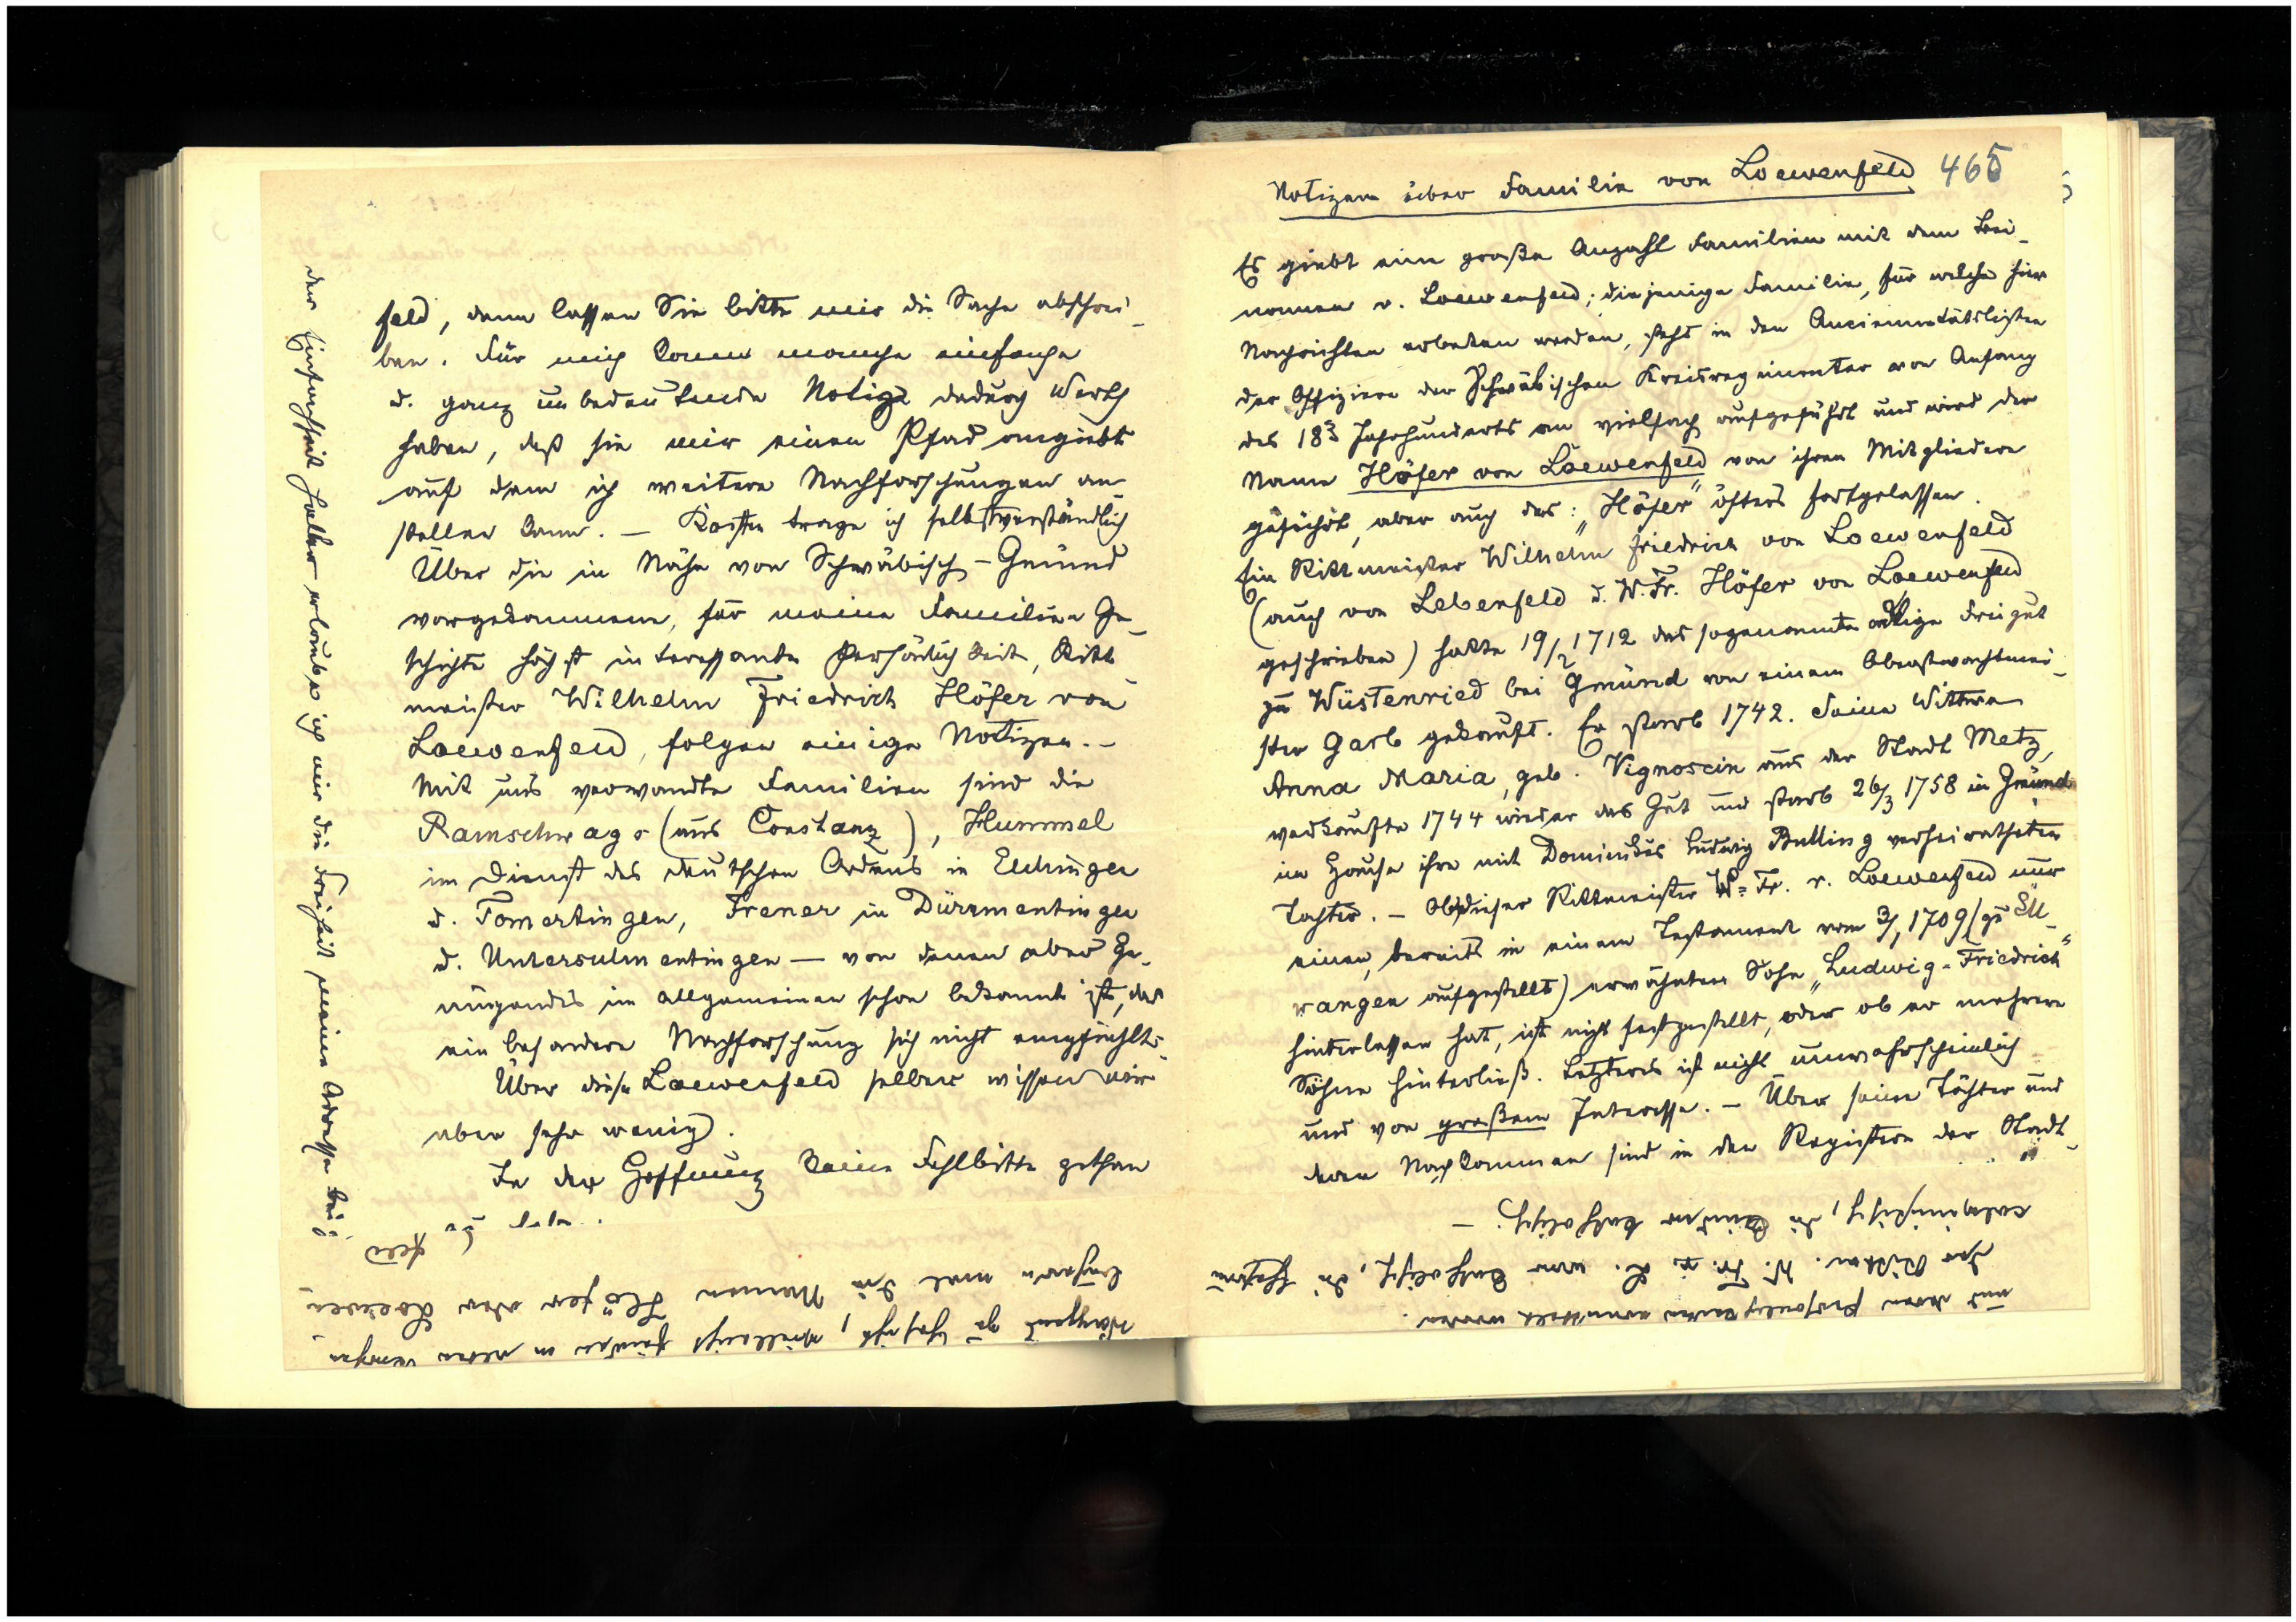 feld, dann lassen Sie bitte mir die Sache abschrei-
ben. Für mich kann manche einfache
u. ganz unbedeutende Notiz dadurch Werth
haben, daß sie mir einen Pfad angiebt
auf dem ich weitere Nachforschungen an
stellen kann. — Kosten trage ich selbstverständlich
Über die in Nähe von Schwäbisch-Gmünd
vorgekommene, für meine Familien Ge-
schichte höchst interessante Persönlichkeit, Ritt
meister Wilhelm Friedrich Höfer von
Loewenfeld, folgen einige Notizen. —
Mit uns verwandte Familien sind die
Ramschwags (aus Constanz), Hummel
im Dienst des deutschen Ordens in Elchingen
u. Tomertingen, Frener in Dürrmentingen
u. Untersulmentingen — von denen aber Ge-
nügendes im allgemeinen schon bekannt ist, daß
ein besondere Nachforschung sich nicht empfiehlt.
Über diese Loewenfeld selber wissen wir
aber sehr wenig.
In der Hoffnung keine Fehlbitte gethan
zu haben.
der Einfachheit halber erlaube ich mir die Freiheit meine Adresse bei
möglich
Namen Höfer oder Loewen-
feld
Notizen über Familie von Loewenfeld 465
Es giebt eine große Anzahl Familien mit dem Bei-
namen v. Loewenfeld; diejenige Familie, für welche hier
Nachrichten erbeten werden, steht in den Anciennetätslisten
der Offiziere der Schwäbischen Kreisregimenter von Anfang
des 18 Jahrhunderts an vielfach aufgeführt und wird der
Name Höfer von Loewenfeld von ihren Mitgliedern
geführt, aber auch das: "Höfer" öfters fortgelassen.
Ein Rittmeister Wilhelm Friedrich von Loewenfeld
(auch von Lebenfeld u. W. Fr. Höfer von Loewenfeld
geschrieben) hatte 19/2 1712 das sogenannte adlige Freigut
zu Wüstenried bei Gmünd von einem Oberstwachtmei-
ster Garb gekauft. Er starb 1742. Seine Wittwe
Anna Maria, geb. Vignoscin aus der Stadt Metz,
verkaufte 1744 wieder das Gut und starb 26/3 1758 in Gmünd
im Hause ihre mit Dominikus Ludwig Bulling verheiratheten
Tochter. — Ob dieser Rittmeister W. Fr. v. Loewenfeld nur
einen, bereits in einem Testament vom 3/1 1709 (zu Ell-
wangen aufgestellt) erwähnten Sohn "Ludwig-Friedrich"
hinterlassen hat, ist nicht festgestellt, oder ob er mehrere
Söhne hinterließ. Letzteres ist nicht unwahrscheinlich
und von großem Interesse. — Über seine Töchter und
deren Nachkommen sind in den Registern der Stadt
und deren Persönlichkeiten ermittelt werden.
Der Rittm. W. Fr. v. L. war katholisch, die